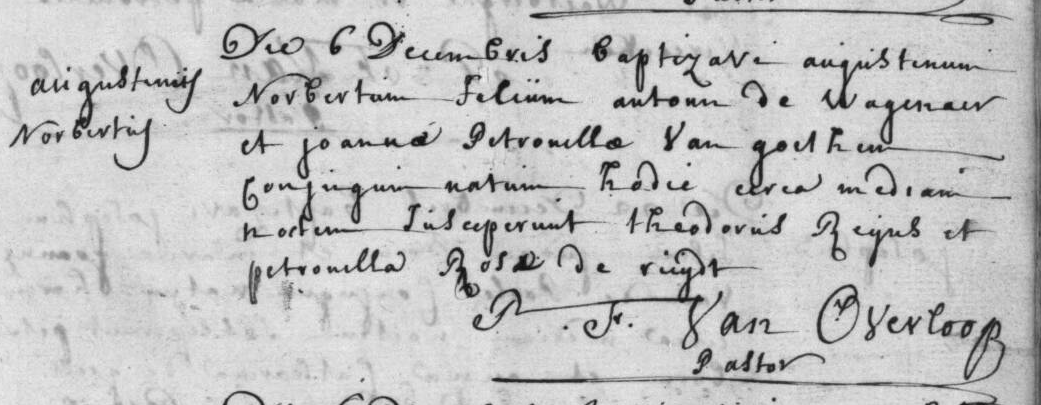 Die 6 Decembris baptizavi augustinum
augustinus
Norbertum Felium antonii de Wagenaer
Norbertus
et joannæ Petronillæ Van goethem
Conjugum natum hodie circa mediam
noctem Susceperunt theodorus Reÿns et
petronilla Rosa de ruÿdt
F. Van Overloop
Pastor